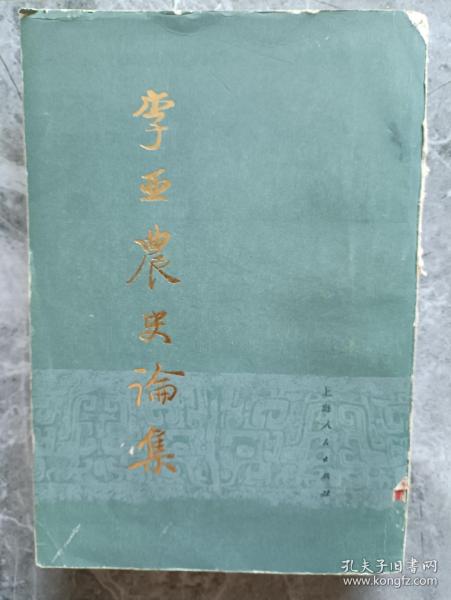 李亚農史論集
上海人民出版社
孔夫子旧书网
www.kongfz.com